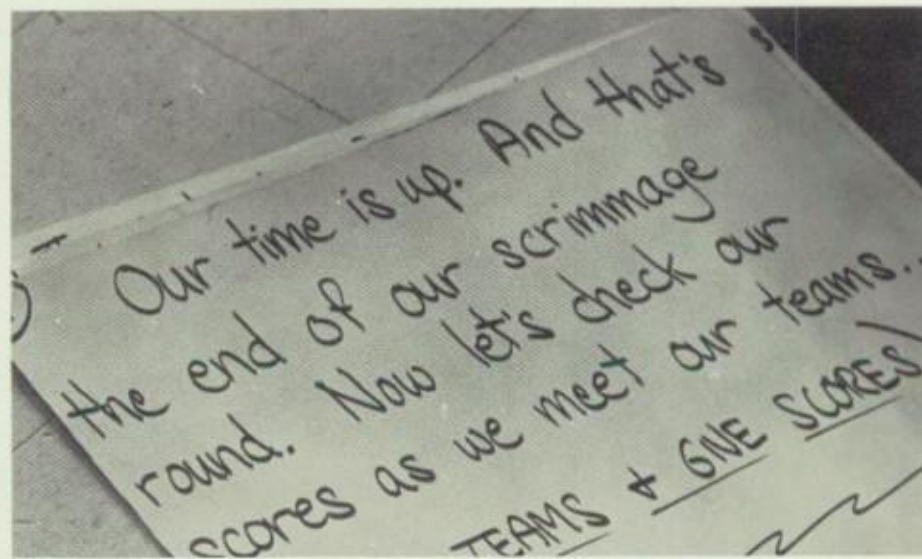 Our time is up. And that's
the end of our scrimmage
round. Now let's check our
scores as we meet our teams..
TEAMS & GIVE SCORES)